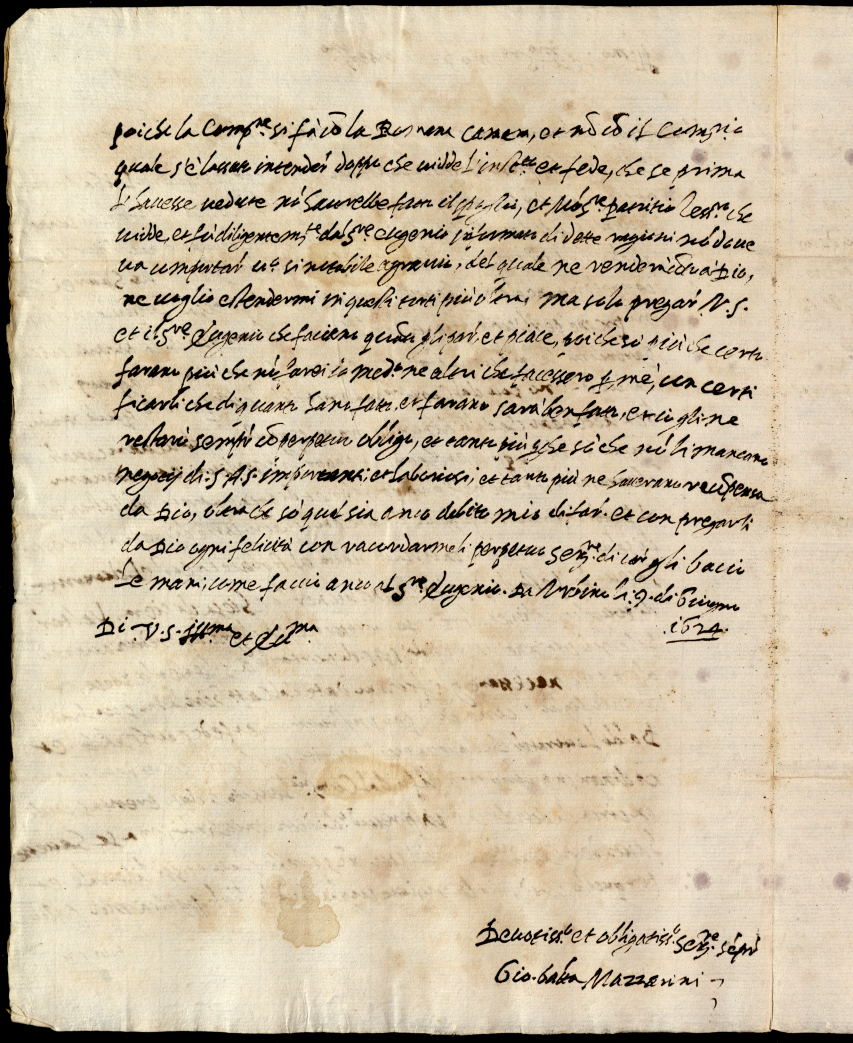 poiche la Comp.re si fà cõ la Romana camera, et nõ cõ il
quale s'è lassato intender doppo che vidde l'inst.tto et fede, che se prima
l'havesse vedute nõ haverebbe fatto il, et Mõs.re patritio che
vidde, et fù diligentem.te dal S.re Eugenio informato di dette ragioni nõ dove
va comportar un sì notabile agravio, del quale ne renderà cõto à Dio,
ne voglio estendermi in questi torti più oltrai ma solo pregar V.S.
et il S.re Eugenio che faciano quãto gli par et piace, poiche so più che certo
farano più che nõ farei io med.mo ne altri che facessero p mè, con certi
ficarli che di quanto hano fatto, et farano sarà ben fatto, et io gli ne
restarò sempre cõ perpetuo obligo, et tanto più che sò che nõ li mancano
negotij di S.A.S. importanti, et laboriosi, et tanto più ne haverano recõpensa
da Dio, oltra che sò quãl sia anco debito mio di far. et con pregarli
da Dio ogni felicità con racordarmeli perpetuo Ser.re di cor gli bacio
le mani, come faccio anco al S.re Eugenio. Da Urbino li .9. di Giugno
Di V.S. Ill.ma et .i624.
Devotiss.o et obligatiss.o Ser.re sẽpr
Gio. batta Mazzarini